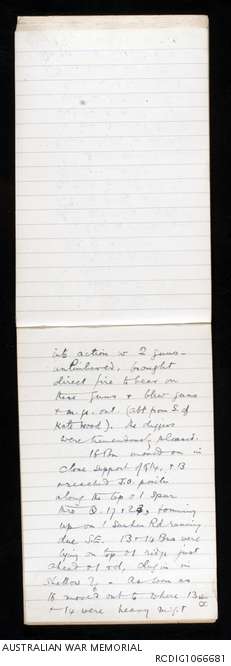 into action w 2 guns -
unlimbered, brought
direct fire to bear on
these guns & blew guns
& m.gs. out (abt from S. of
Kate Wood). The diggers
were tremendously pleased.
16 Bn moved on in
close support of 14, & 13
& reached S.O. position
along the top of spur
Q. 17 & 23, coming
up on Sunken Rd running
due S.E. 13 & 14 Bns were
lying on top of ridge just
ahead of rd, dug in in
shallow - As soon as
16 moved out to where 13
& 14 were heavy m.g.f
AUSTRALIAN WAR MEMORIAL
RCDIG1066681